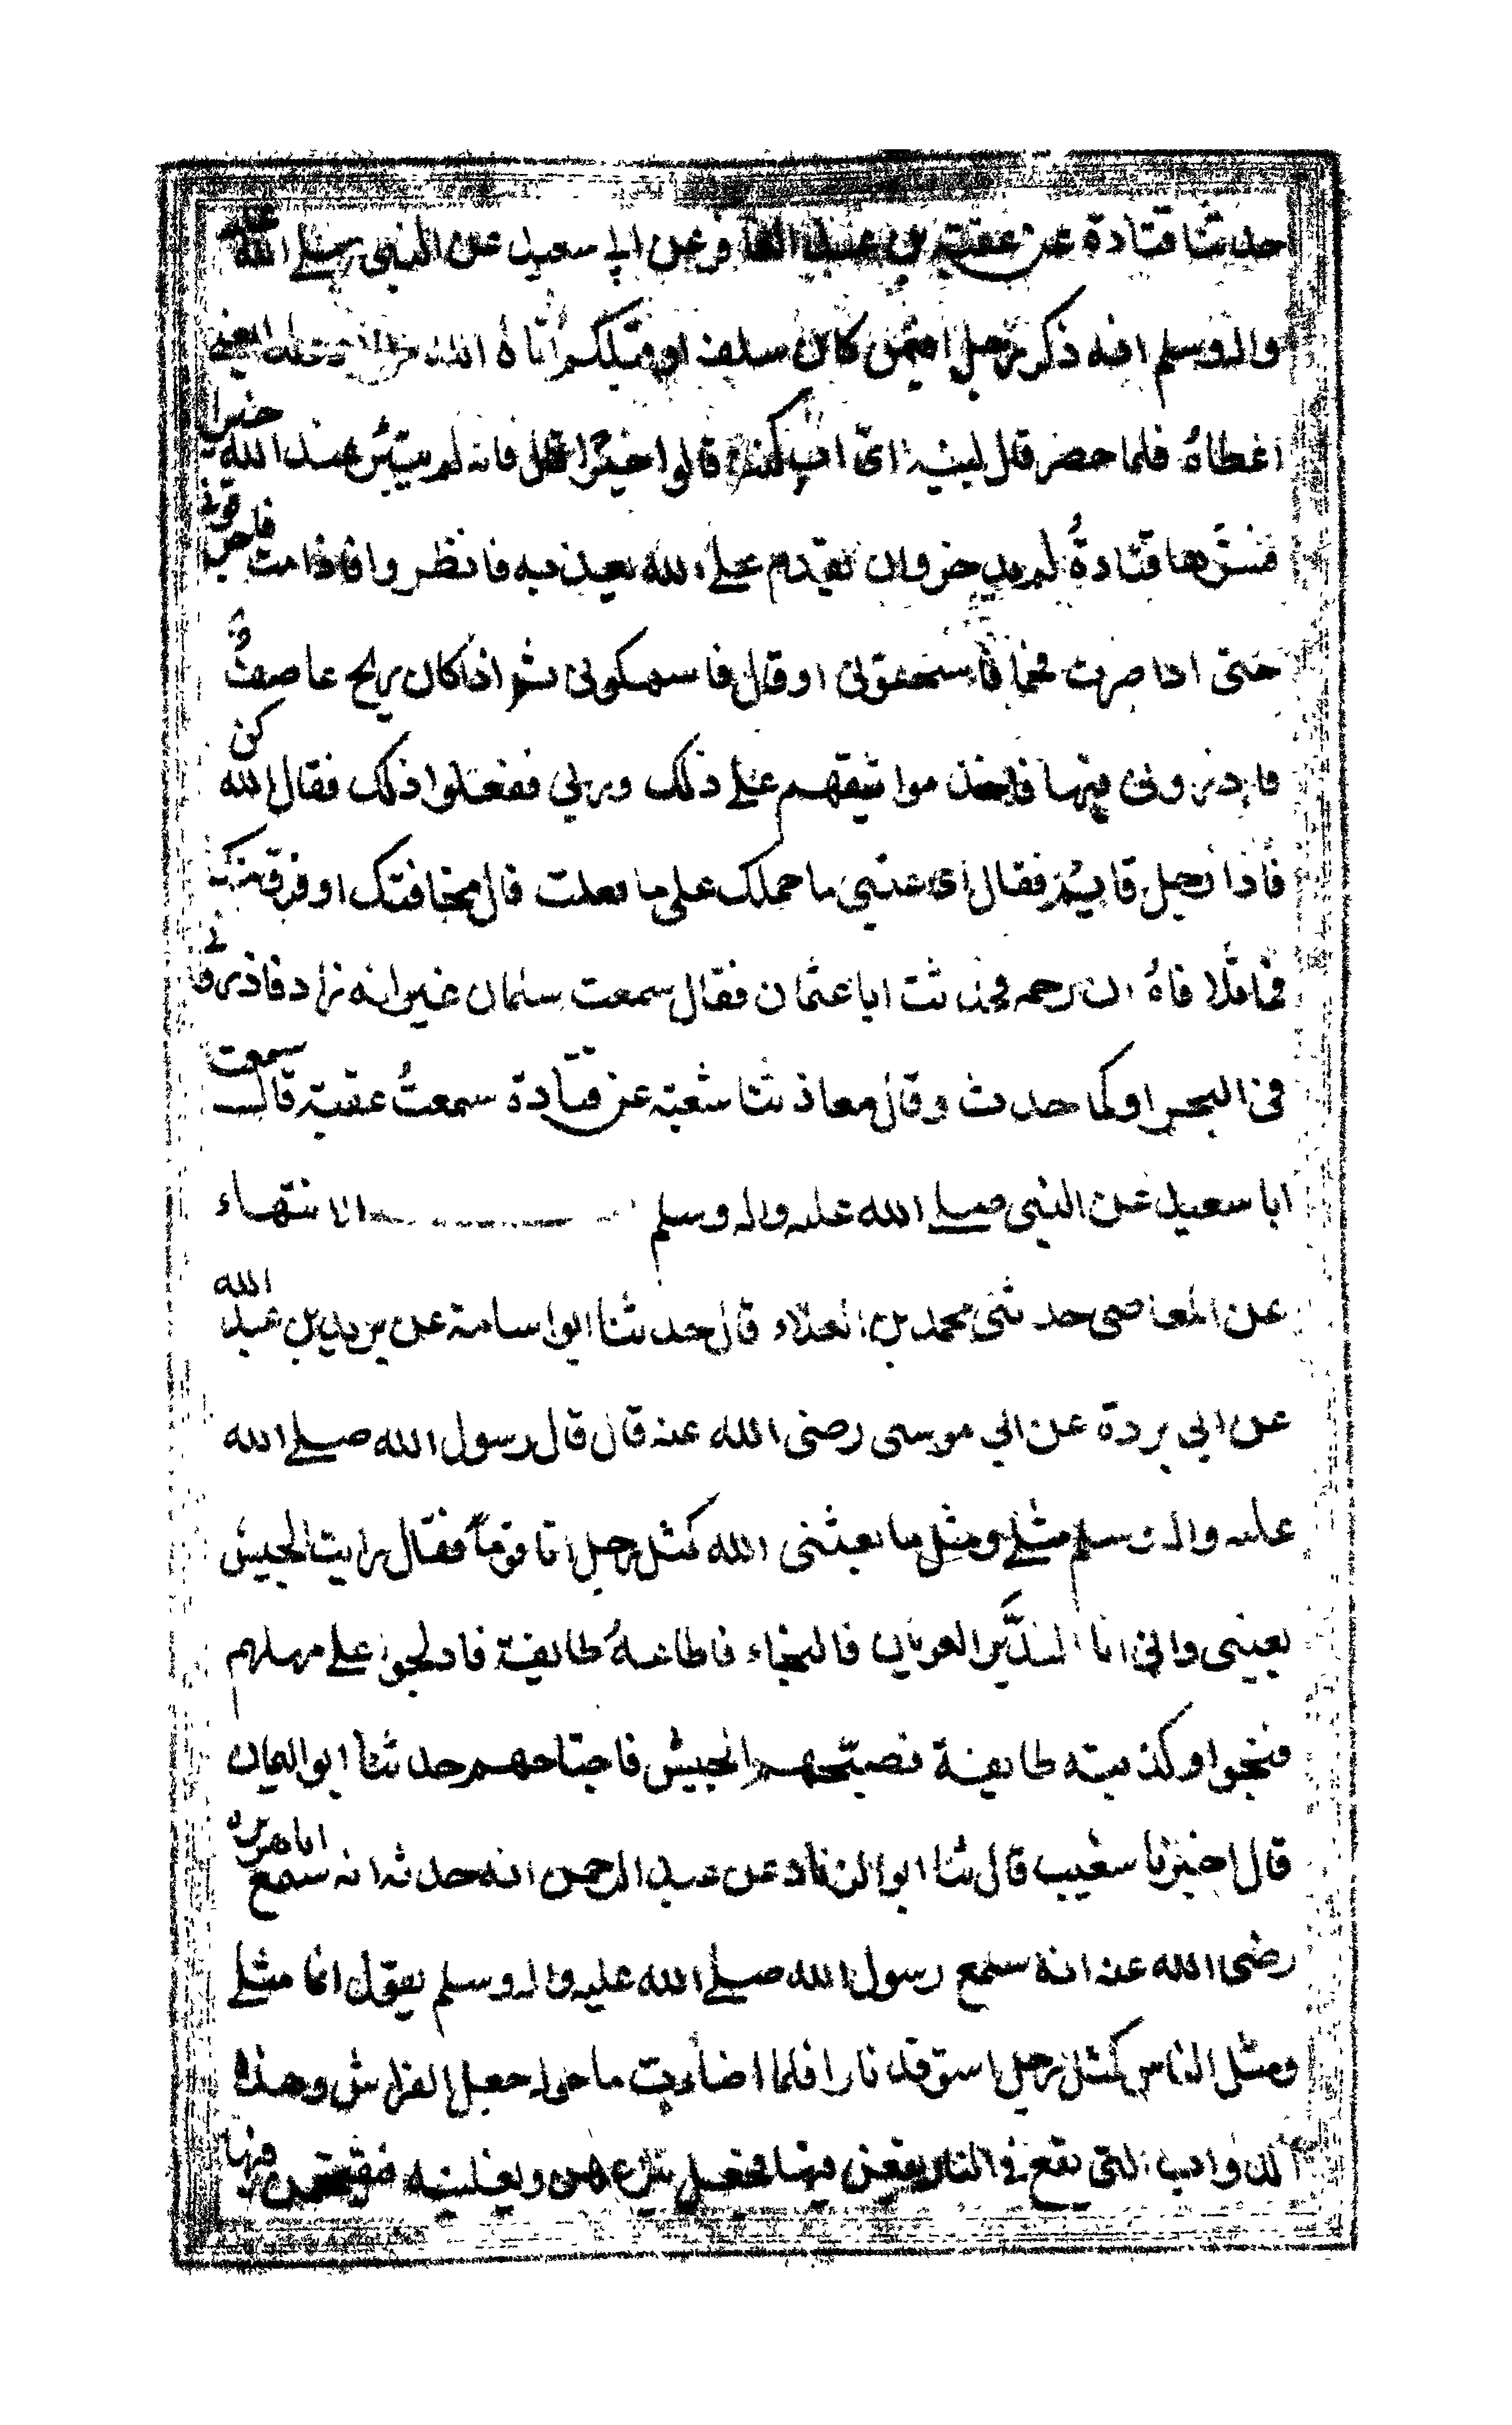 حدثنا قتادة عن عقبة بن عبد الغافر عن ابي سعيد عن النبي صلى الله عليه
واله وسلم انه ذكر رجلا فيمن كان سلف او قبلكم اتاه الله مالا وولدا يعني
اعطاه فلما حضر قال لبنيه اى اب كنت قالوا خيرا قال فانه لم يبتئر عند الله خيرا
فسرها قتادة لم يدخر وان يقدم على الله يعذبه فانظروا فاذا مت فاحرقوني
حتى اذا صرت فحما فاسحقوني او قال فاسهكوني ثم اذا كان ريح عاصف
فاذروني فيها فاخذ مواثيقهم على ذلك وربي ففعلوا ذلك فقال الله كن
فاذا رجل قايم فقال اى عبدي ما حملك على ما فعلت قال مخافتك او فرق منك
فما تلافاه ان رحمه فحدثت ابا عثمان فقال سمعت سلمان غير انه زاد فاذروني
في البحر او كما حدث وقال معاذ ثنا شعبة عن قتادة سمعت عقبة قال سمعت
ابا سعيد عن النبي صلى الله عليه واله وسلم الانتهاء
عن المعاصى حدثنى محمد بن العلاء قال حدثنا ابو اسامة عن بريد بن عبد الله
عن ابي بردة عن ابي موسى رضى الله عنه قال قال رسول الله صلى الله
عليه واله وسلم مثلي ومثل ما بعثني الله كمثل رجل اتا قوما فقال رايت الجيش
بعيني واني انا النذير العريان فالنجاء فاطاعه طايفة فادلجوا على مهلهم
فنجوا وكذبته طايفة فصبحهم الجيش فاجتاحهم حدثنا ابو اليمان
قال اخبرنا شعيب قال ثنا ابو الزناد عن عبد الرحمن انه حدثه انه سمع ابا هريرة
رضى الله عنه انه سمع رسول الله صلى الله عليه واله وسلم يقول انما مثلي
ومثل الناس كمثل رجل استوقد نارا فلما اضاءت ما حوله جعل الفراش وهذه
الدواب التى تقع في النار يقعن فيها فجعل ينزعهن ويغلبنه فيقتحمن فيها